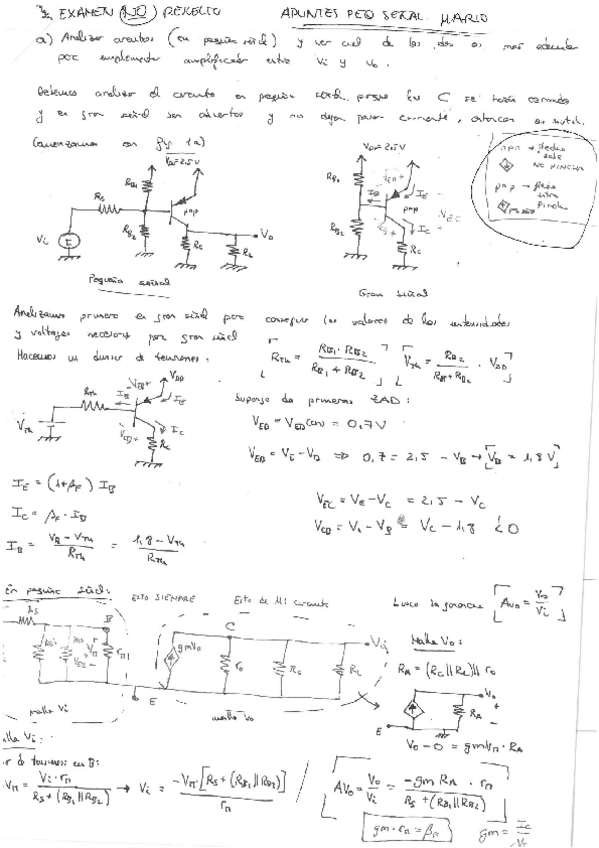 EXAMEN (NO) RESUELTO APUNTES PEQ SEÑAL MARIO
a) Analizar circuitos (en pequeña señal) y ver cual de los dos es más adecuado
para implementar amplificador entre Vi y Vo.
Debemos analizar el circuito en pequeña señal porque los C se harán
y en gran señal son abiertos y nos dejan pasar corriente, entonces
Comenzamos con fig 1a)
VDD=2.5V
RB1
RS
pnp
Vi
RB2
RC
RL
Vo
Pequeña señal
VDD=2.5V
RB1
IB
IE
pnp
VEC
RB2
IC
RC
Gran Señal
npn → flecha
sale
NO PINCHA
pnp → flecha
entra
PINCHA
Analizamos primero en gran señal para conseguir los valores de las intensidades
y voltajes necesarios por gran señal
Hacemos un divisor de tensiones:
RTH = RB1 · RB2 / RB1 + RB2
VTH = RB2 / RB1+RB2 · VDD
VTH
RTH
IB
VDD
IE
IC
RC
Supongo de primeras ZAD:
VEB = VEB(on) = 0,7V
VEB = VE - VB ⇒ 0,7 = 2,5 - VB → VB = 1,8V
IE = (1+βF) IB
IC = βF · IB
IB = VB - VTH / RTH = 1,8 - VTH / RTH
VEC = VE - VC = 2,5 - VC
VCB = VC - VB = VC - 1,8 < 0
En pequeña señal:
ESTO SIEMPRE
Esto de Mi circuito
Luego la ganancia AVo = Vo / Vi
RS
B
Vπ
rπ
malla Vi
E
gmVπ
C
ro
RC
RL
Vo
malla Vo
Malla Vo:
RA = (RC || RL) || ro
E
RA
Vo
Vo - 0 = gmVπ · RA
Malla Vi:
de tensiones en B:
-Vπ = Vi · rπ / RS + (RB1 || RB2) → Vi = -Vπ · [RS + (RB1 || RB2)] / rπ
AVo = Vo / Vi = -gm RA · rπ / RS + (RB1 || RB2)
gm · rπ = βF
gm = IC / VT